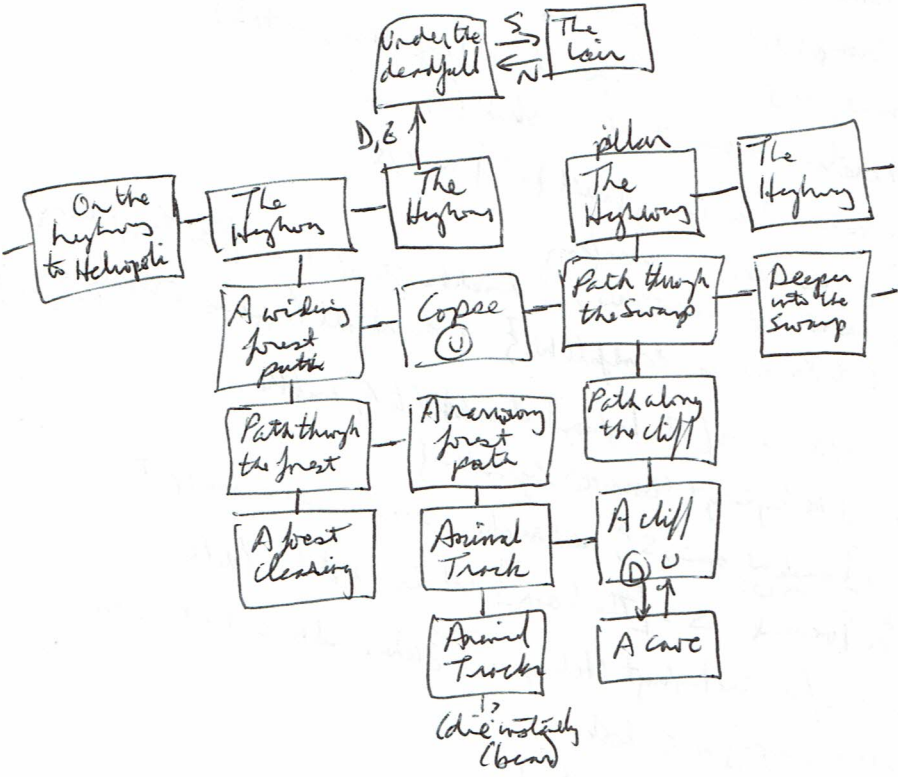 Under the
deadfall
S
N
The
Lair
D, E
pillar
On the
highway
to Heliopoli
The
Highway
The
Highway
The
Highway
The
Highway
A widening
forest
path
Copse
U
Path through
the Swamp
Deeper
into the
Swamp
Path through
the forest
A narrowing
forest
path
Path along
the cliff
A forest
clearing
Animal
Track
A cliff
D U
Animal
Tracks
A cave
(die instantly
(bear)